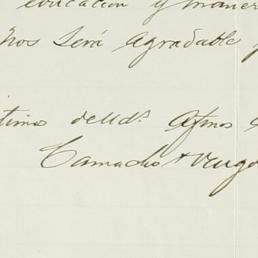 educacion y maner
nos será agradable
timos de Uds. Afmos
Camacho & Vergo